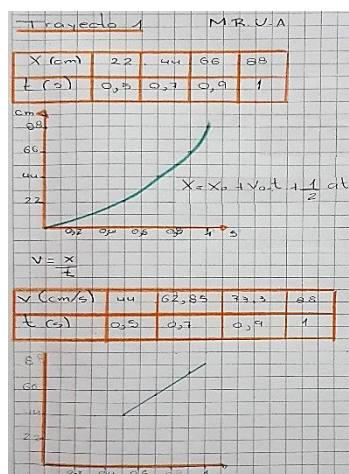 Trayecto 1 M.R.U.A
X (cm) 22 44 66 88
t (s) 0,5 0,7 0,9 1
cm
88
66
44
22
X=X₀+V₀.t+1/2 at
0,2 0,4 0,6 0,8 1 s
V=x/t
V (cm/s) 44 62,85 73,3 88
t (s) 0,5 0,7 0,9 1
88
60
44
22
0,2 0,4 0,6 0,8 1